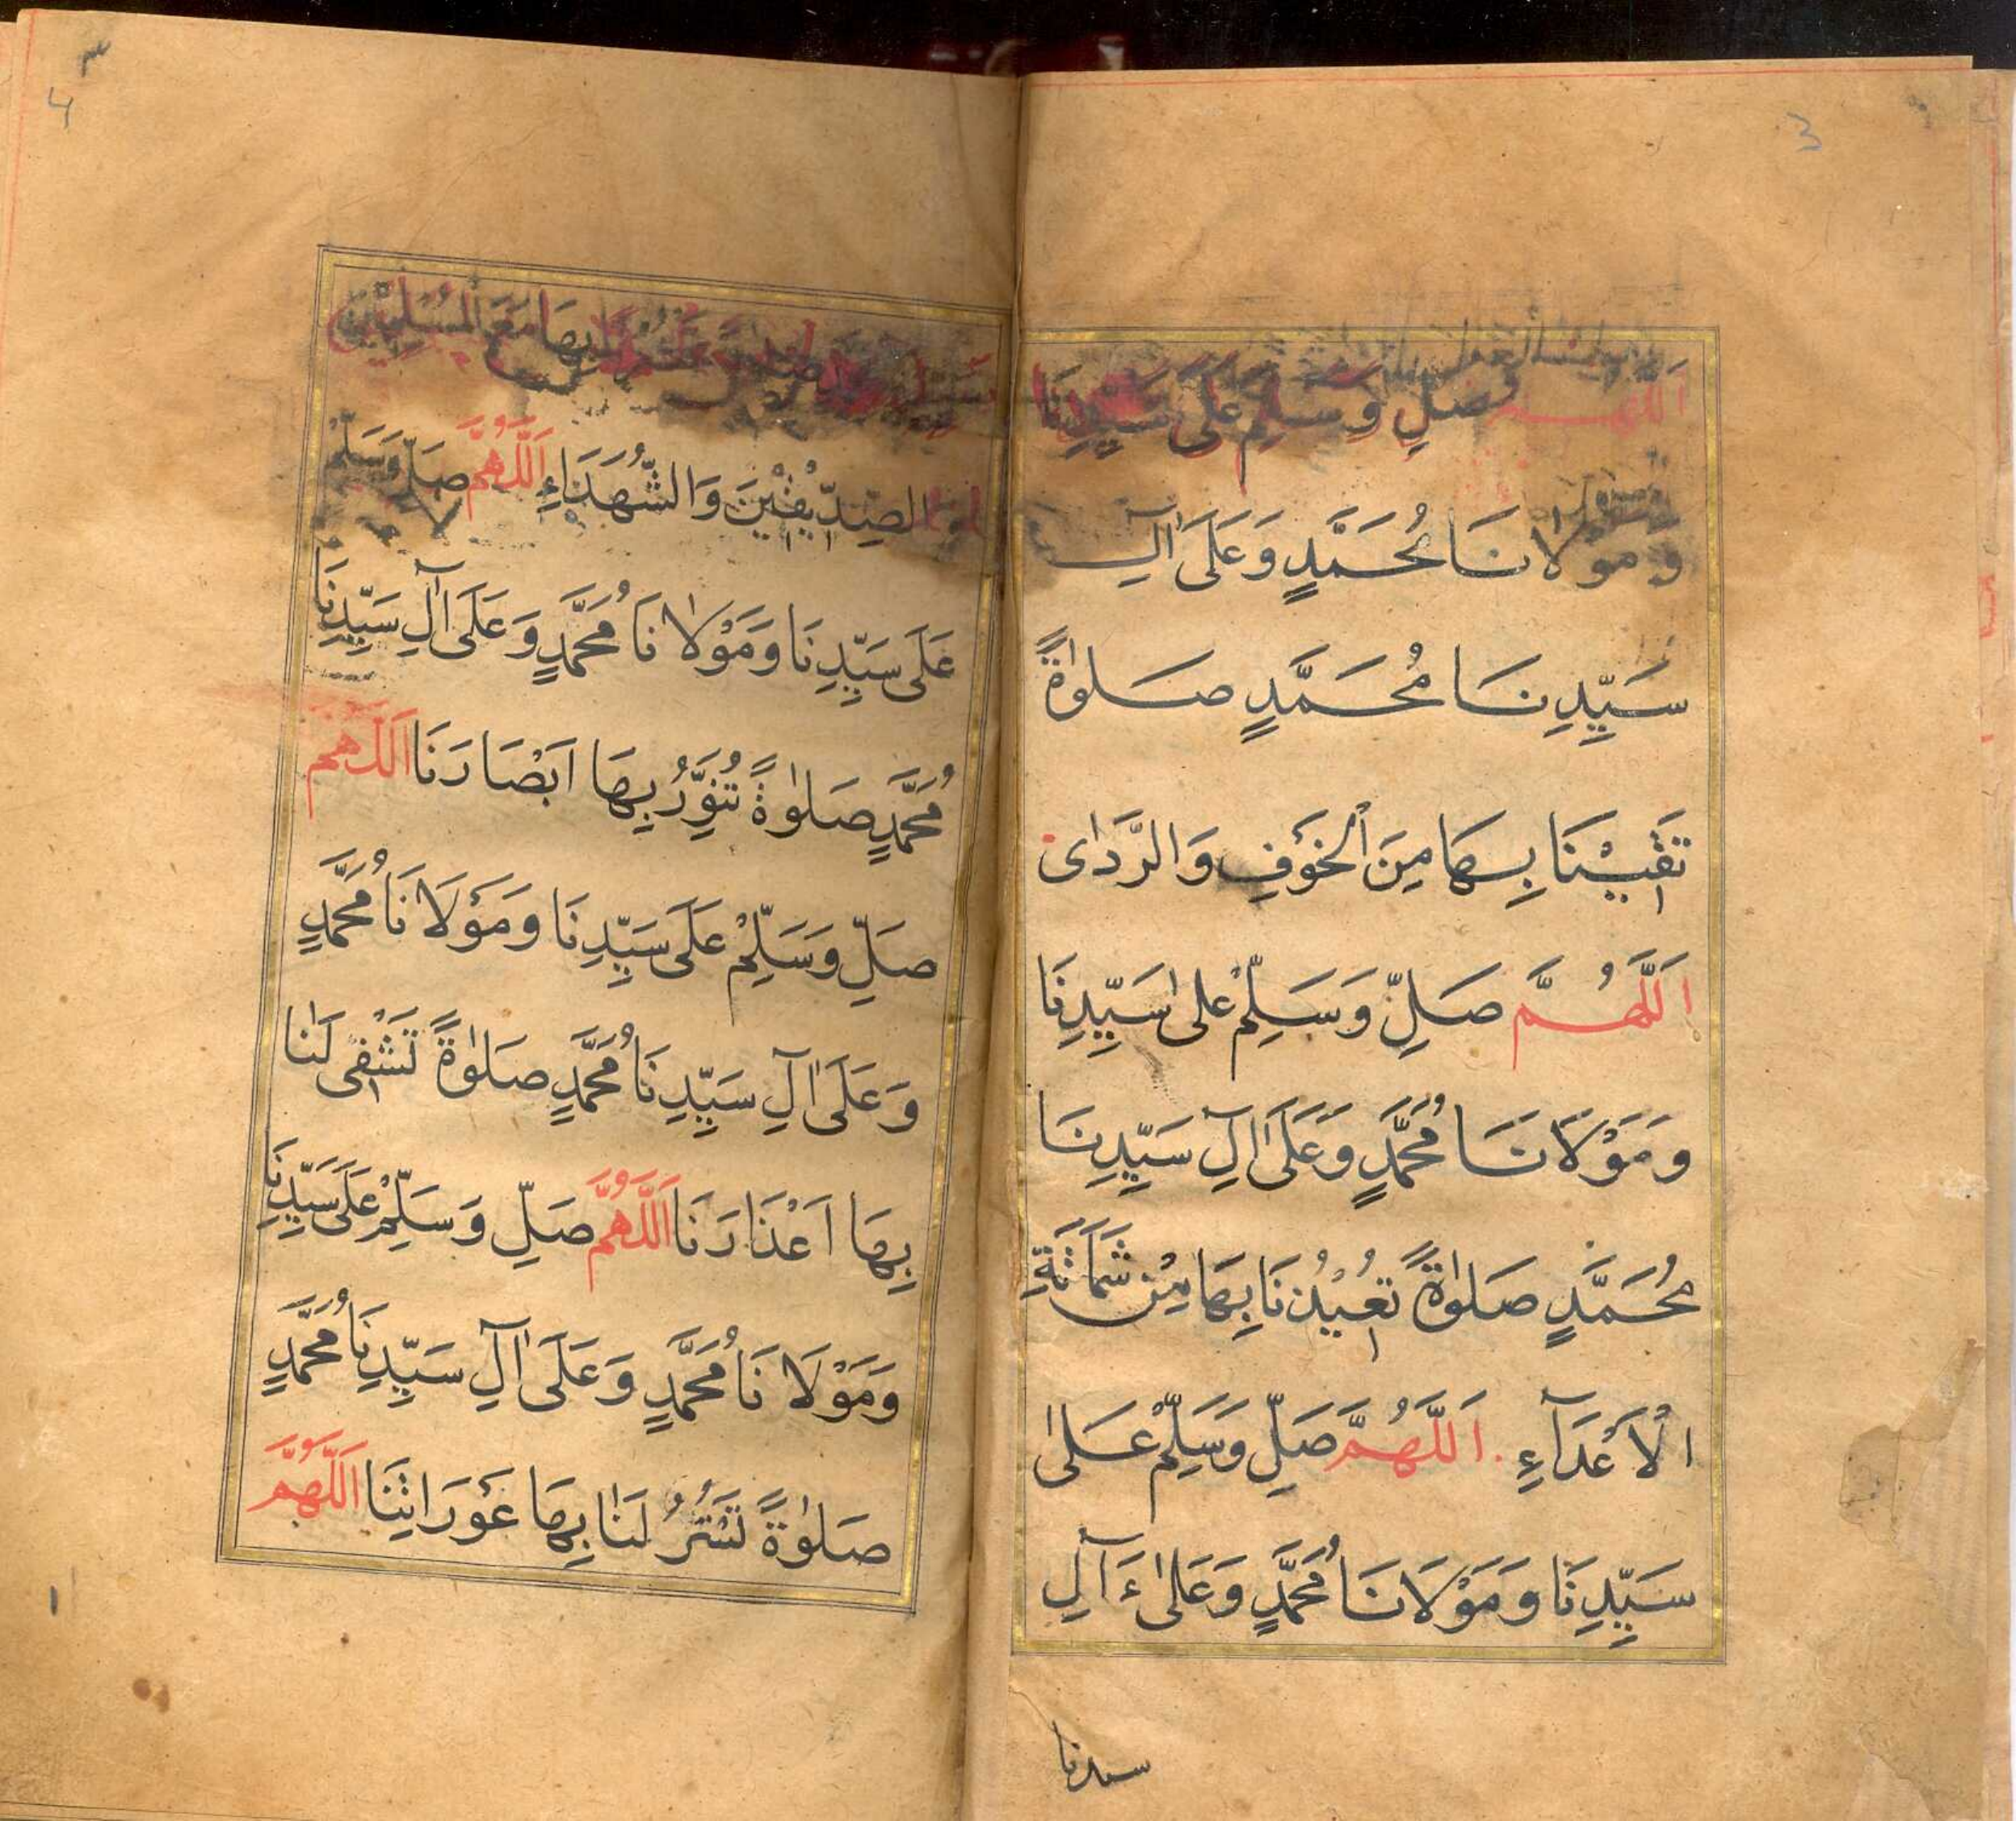 3
اَللّٰهُمَّ صَلِّ وَسَلِّمْ عَلٰى سَيِّدِنَا
وَمَوْلَانَا مُحَمَّدٍ وَعَلَىٰ اٰلِ
سَيِّدِنَا مُحَمَّدٍ صَلٰوةً
تَقِيْنَا بِهَا مِنَ الْخَوْفِ وَالرَّدٰى
اَللّٰهُمَّ صَلِّ وَسَلِّمْ عَلٰى سَيِّدِنَا
وَمَوْلَانَا مُحَمَّدٍ وَعَلَىٰ اٰلِ سَيِّدِنَا
مُحَمَّدٍ صَلٰوةً تُعِيْذُنَا بِهَا مِنْ شَمَاتَةِ
الْاَعْدَآءِ اَللّٰهُمَّ صَلِّ وَسَلِّمْ عَلٰى
سَيِّدِنَا وَمَوْلَانَا مُحَمَّدٍ وَعَلٰى ءَآلِ
سيدنا
٣
4
بِهَا مَعَ الْمُسْلِمِيْنَ
الصِّدِّيْقِيْنَ وَالشُّهَدَاءِ اَللّٰهُمَّ صَلِّ وَسَلِّمْ
عَلَى سَيِّدِنَا وَمَوْلَانَا مُحَمَّدٍ وَعَلَى اٰلِ سَيِّدِنَا
مُحَمَّدٍ صَلٰوةً تُنَوِّرُ بِهَا اَبْصَارَنَا اَللّٰهُمَّ
صَلِّ وَسَلِّمْ عَلَى سَيِّدِنَا وَمَوْلَانَا مُحَمَّدٍ
وَعَلَى اٰلِ سَيِّدِنَا مُحَمَّدٍ صَلٰوةً تَشْفِى لَنَا
بِهَا اَعْذَارَنَا اَللّٰهُمَّ صَلِّ وَسَلِّمْ عَلَى سَيِّدِنَا
وَمَوْلَانَا مُحَمَّدٍ وَعَلَى اٰلِ سَيِّدِنَا مُحَمَّدٍ
صَلٰوةً تَسْتُرُ لَنَا بِهَا عَوْرَاتِنَا اَللّٰهُمَّ